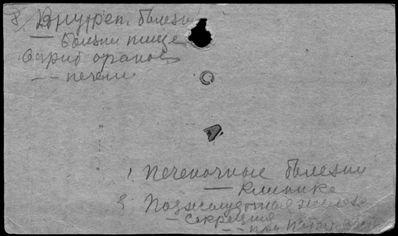 Внутрен. болезни
— болезни пище
варит органов
— — печени
1. Печеночные болезни
— клиника
Поджелудочная железа
— секреция
— при